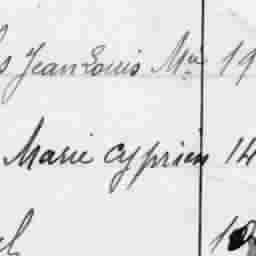 s Jean Louis Mie 19
Marie Cyprien 14
el 10